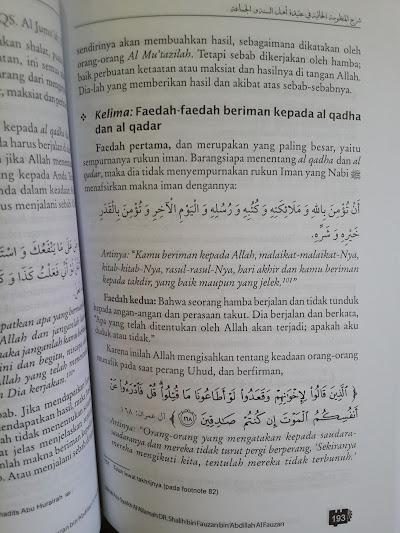 QS. Al Jumu'ah
akan shalat,
atan, ini semua
dari mengerjakan
maksiat dan
kepada al qadar
harus berjalan
jika Allah menen
kepada Anda
nda dalam keadaan
us menjalani sebab
patkan apa yang
an Allah dan
maka janganlah
ini dan begitu,
Allah yang telah
n Dia kerjakan.
bab. Jika mendapatkan
endapatkan hasil, maka
ah tidak menentukan
at jelas menjelaskan
nlah makna beriman
Atau menjalani sebab
hadits Abu Hurairah
شرح المنظومة الحائية في عقيدة أهل السنة و الجماعة
sendirinya akan membuahkan hasil, sebagaimana dikatakan oleh
orang-orang Al Mu'tazilah. Tetapi sebab dikerjakan oleh hamba;
baik perbuatan ketaatan atau maksiat dan hasilnya di tangan Allah.
Dia-lah yang memberikan hasil dan akibat atas sebab-sebabnya.
❖ Kelima: Faedah-faedah beriman kepada al qadha
dan al qadar
Faedah pertama, dan merupakan yang paling besar, yaitu
sempurnanya rukun iman. Barangsiapa menentang al qadha dan al
qadar, maka dia tidak menyempurnakan rukun Iman yang Nabi ﷺ
menafsirkan makna iman dengannya:
أَنْ تُؤْمِنَ بِاللهِ وَ مَلَائِكَتِهِ وَ كُتُبِهِ وَ رُسُلِهِ وَ الْيَوْمِ الْآخِرِ وَ تُؤْمِنَ بِالْقَدَرِ
خَيْرِهِ وَ شَرِّهِ.
Artinya: "Kamu beriman kepada Allah, malaikat-malaikat-Nya,
kitab-kitab-Nya, rasul-rasul-Nya, hari akhir dan kamu beriman
kepada takdir, yang baik maupun yang jelek.¹⁰¹"
Faedah kedua: Bahwa seorang hamba berjalan dan tidak tunduk
kepada angan-angan dan perasaan takut. Dia berjalan dan berkata,
"Apa yang telah ditentukan oleh Allah akan terjadi; apakah aku
duduk atau tidak."
Karena inilah Allah mengisahkan tentang keadaan orang-orang
munafik pada saat perang Uhud, dan berfirman,
﴿ الَّذِينَ قَالُوا لِإِخْوَانِهِمْ وَقَعَدُوا لَوْ أَطَاعُونَا مَا قُتِلُوا قُلْ فَادْرَءُوا عَنْ
أَنْفُسِكُمُ الْمَوْتَ إِنْ كُنْتُمْ صَادِقِينَ ﴿١٦٨﴾ آل عمران: ١٦٨
Artinya: "Orang-orang yang mengatakan kepada saudara-
saudaranya dan mereka tidak turut pergi berperang, 'Sekiranya
mereka mengikuti kita, tentulah mereka tidak terbunuh.'
101 Telah lewat takhrijnya (pada footnote 82)
Syaikh Al 'Allamah DR. Shalih bin Fauzan bin 'Abdillah Al Fauzan
193